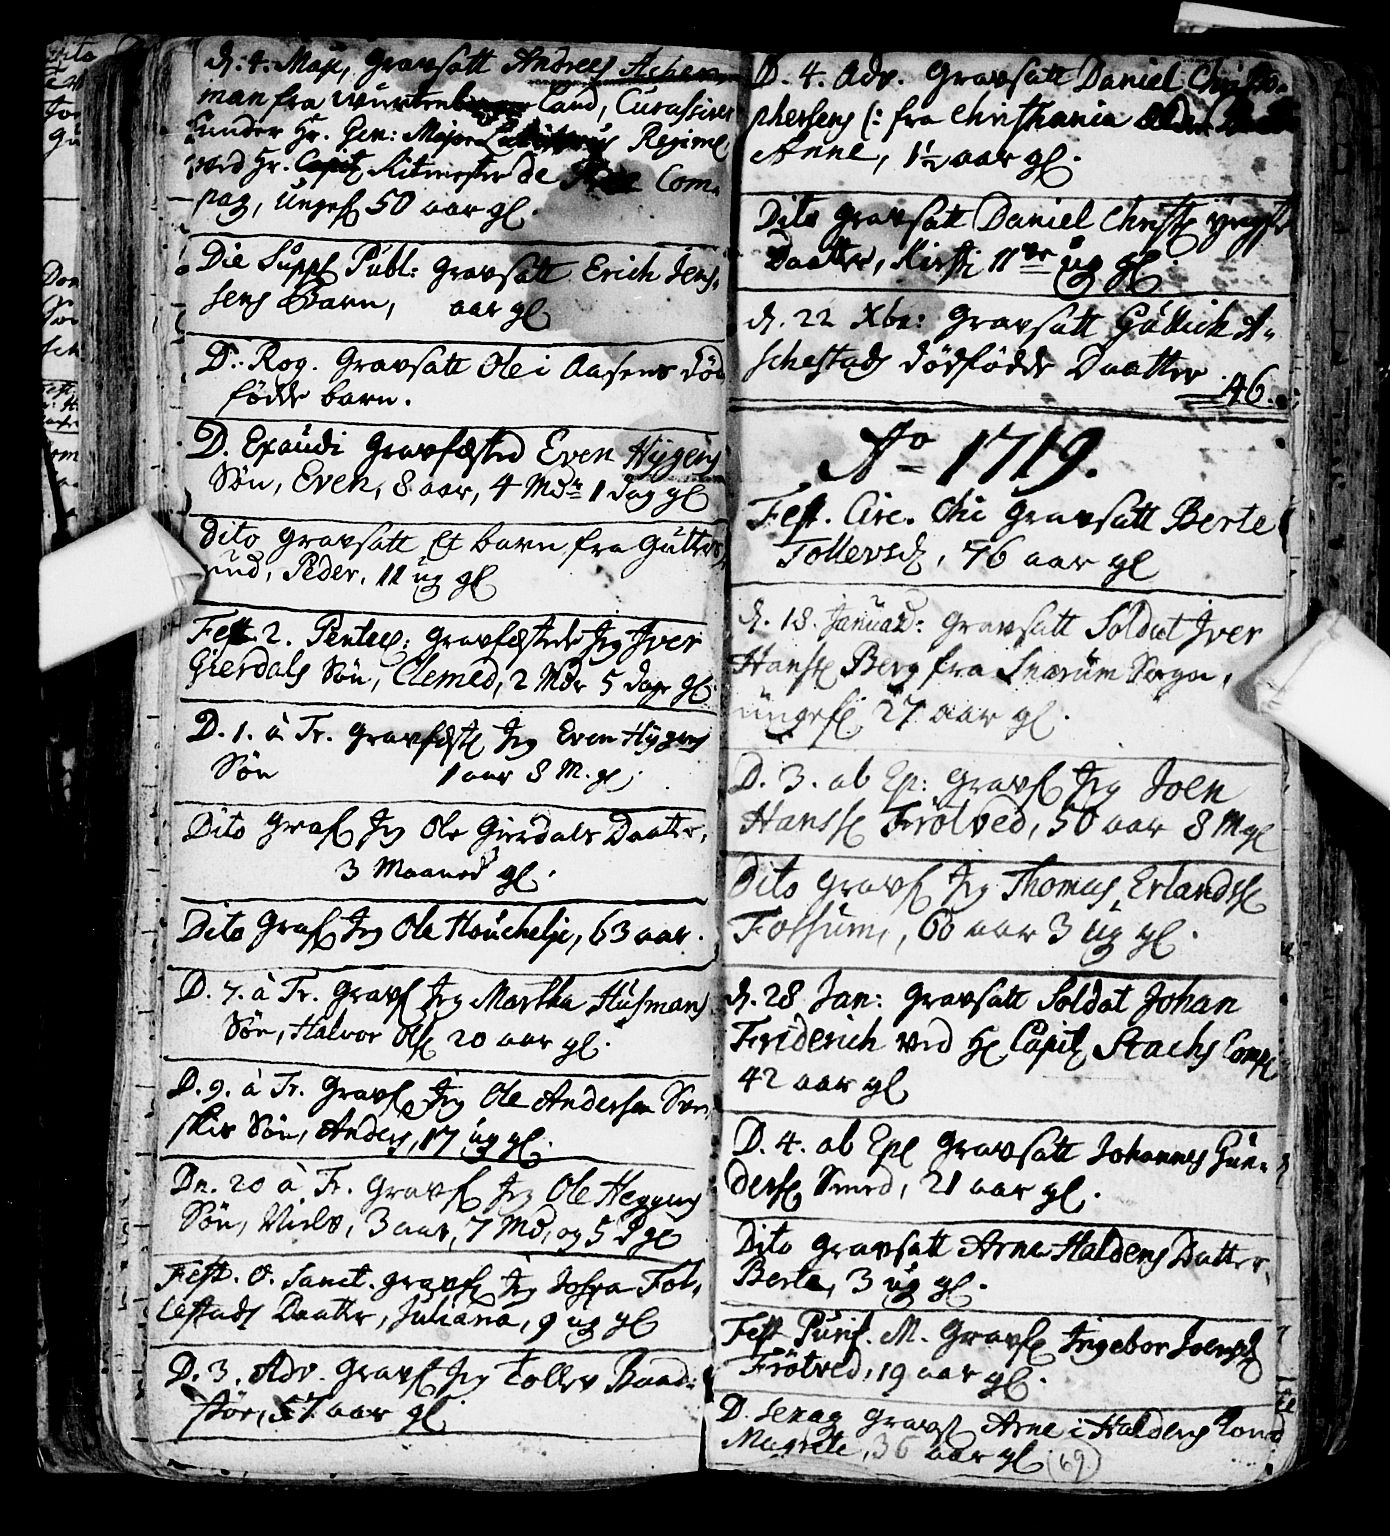 d. 4. Maji, Gravsatt Andreas Acher-
man fra Wurtenb Land, Curassirer
under Hr. Gen: Major Regim
ved Hr. Capit Ritmester de Com-
pag, ungef 50 aar gl.
Die Supp Publ: Gravsatt Erich Jens-
sens Barn, aar gl
D. Rog. Gravsatt Ole i Aasens død
fødde barn.
D. Exaudi Gravfæsted Even Hÿgens
Søn, Even, 8 aar, 4 Mdr 1 dag gl
Dito Gravsatt Et barn fra Gutter-
rud, Peder, 11 ug gl
Fest. 2. Pentec: Gravfæstede Jeg Iver
Gierdals Søn, Clemed, 2 Mdr 5 dage gl.
D. 1. à Tr. Gravfæst Jeg Even Hÿgens
Søn 1 aar 8 M. gl.
Dito Graf Jeg Ole Gierdals Daatter,
3 Maaned gl.
Dito Graf Jeg Ole Houchelje, 63 aar.
D. 7. à Tr. Gravf Jeg Martha Husmans
Søn, Halvor Ols 20 aar gl.
D. 9. à Tr. Gravf Jeg Ole Andersen Sven-
skes Søn, Anders, 17 ug gl.
Dn. 20 à Tr. Gravf Jeg Ole Heggens
Søn, Niels, 3 aar, 7 Md, og 5 D gl
Fest. O. Sanct. Gravf Jeg Fol-
lestads Daatter, Juliana, 9 ug gl
D. 3. Adv. Gravf Jeg Tollev Baad-
stør, 57 aar gl
D. 4. Adv. Gravsatt Daniel Christo-
phersens (: fra Christhania
Anne, 1½ aar gl.
Dito Gravsatt Daniel Christ yngste
Daatter, Kirsti 11 ug gl
d. 22 Xbr: Gravsatt Gullich A-
schestads dødfødde Daatter 46.
Ao 1719.
Fest. Circ. Chi Gravsatt Berte
Tollevsd, 76 aar gl
d. 18. Januar: Gravsatt Soldat Iver
Hans Berg fra Snarum Sogn,
ungef 27 aar gl.
D. 3. ab Ep: Gravf Jeg Joen
Hanss Frölved, 50 aar 8 M gl
Dito Gravf Jeg Thomas Erlands
Folsum, 60 aar 3 ug gl.
d. 28 Jan: Gravsatt Soldat Johan
Friderich ved H Capit Stachs Comp
42 aar gl
D. 4. ab Ep Gravsatt Johannes Gun-
ders Smed, 21 aar gl.
Dito Gravsatt Arne Haldens Datter
Berte, 3 ug gl.
Fest Purif. M. Gravf Ingebor Joensd
Frölved, 19 aar gl.
D. Sexag Gravf Arne i Haldens Kone
Magrete, 36 aar gl (69)